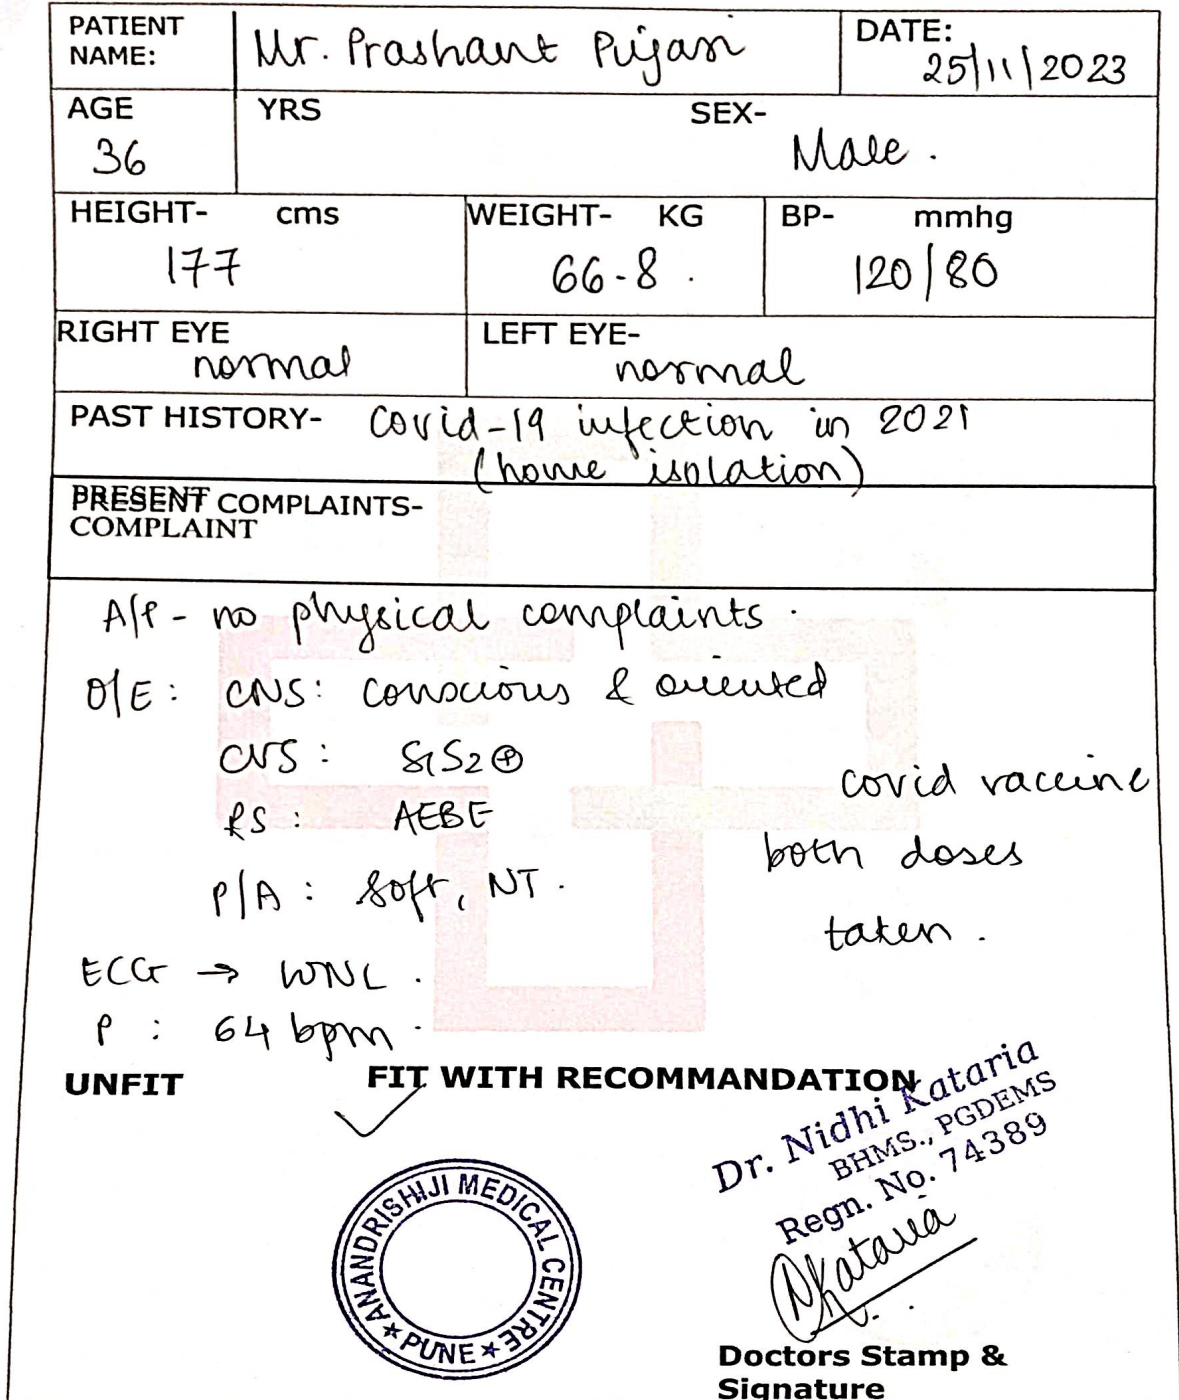 PATIENT NAME: Mr. Prashant Pujari DATE: 25/11/2023
AGE 36 YRS SEX- Male.
HEIGHT- cms 177 WEIGHT- KG 66-8. BP- mmhg 120/80
RIGHT EYE normal LEFT EYE- normal
PAST HISTORY- Covid-19 infection in 2021
(home isolation)
PRESENT COMPLAINTS-
COMPLAINT
A/P - no physical complaints.
O/E: CNS: conscious & oriented
CVS: S1S2⊕
RS: AEBE
P/A: Soft, NT.
covid vaccine
both doses
taken.
ECG → WNL.
P: 64 bpm.
UNFIT FIT WITH RECOMMANDATION
Dr. Nidhi Kataria
BHMS., PGDEMS
Regn. No. 74389
NKataria
ANANDRISHIJI MEDICAL CENTRE
★ PUNE ★
Doctors Stamp &
Signature